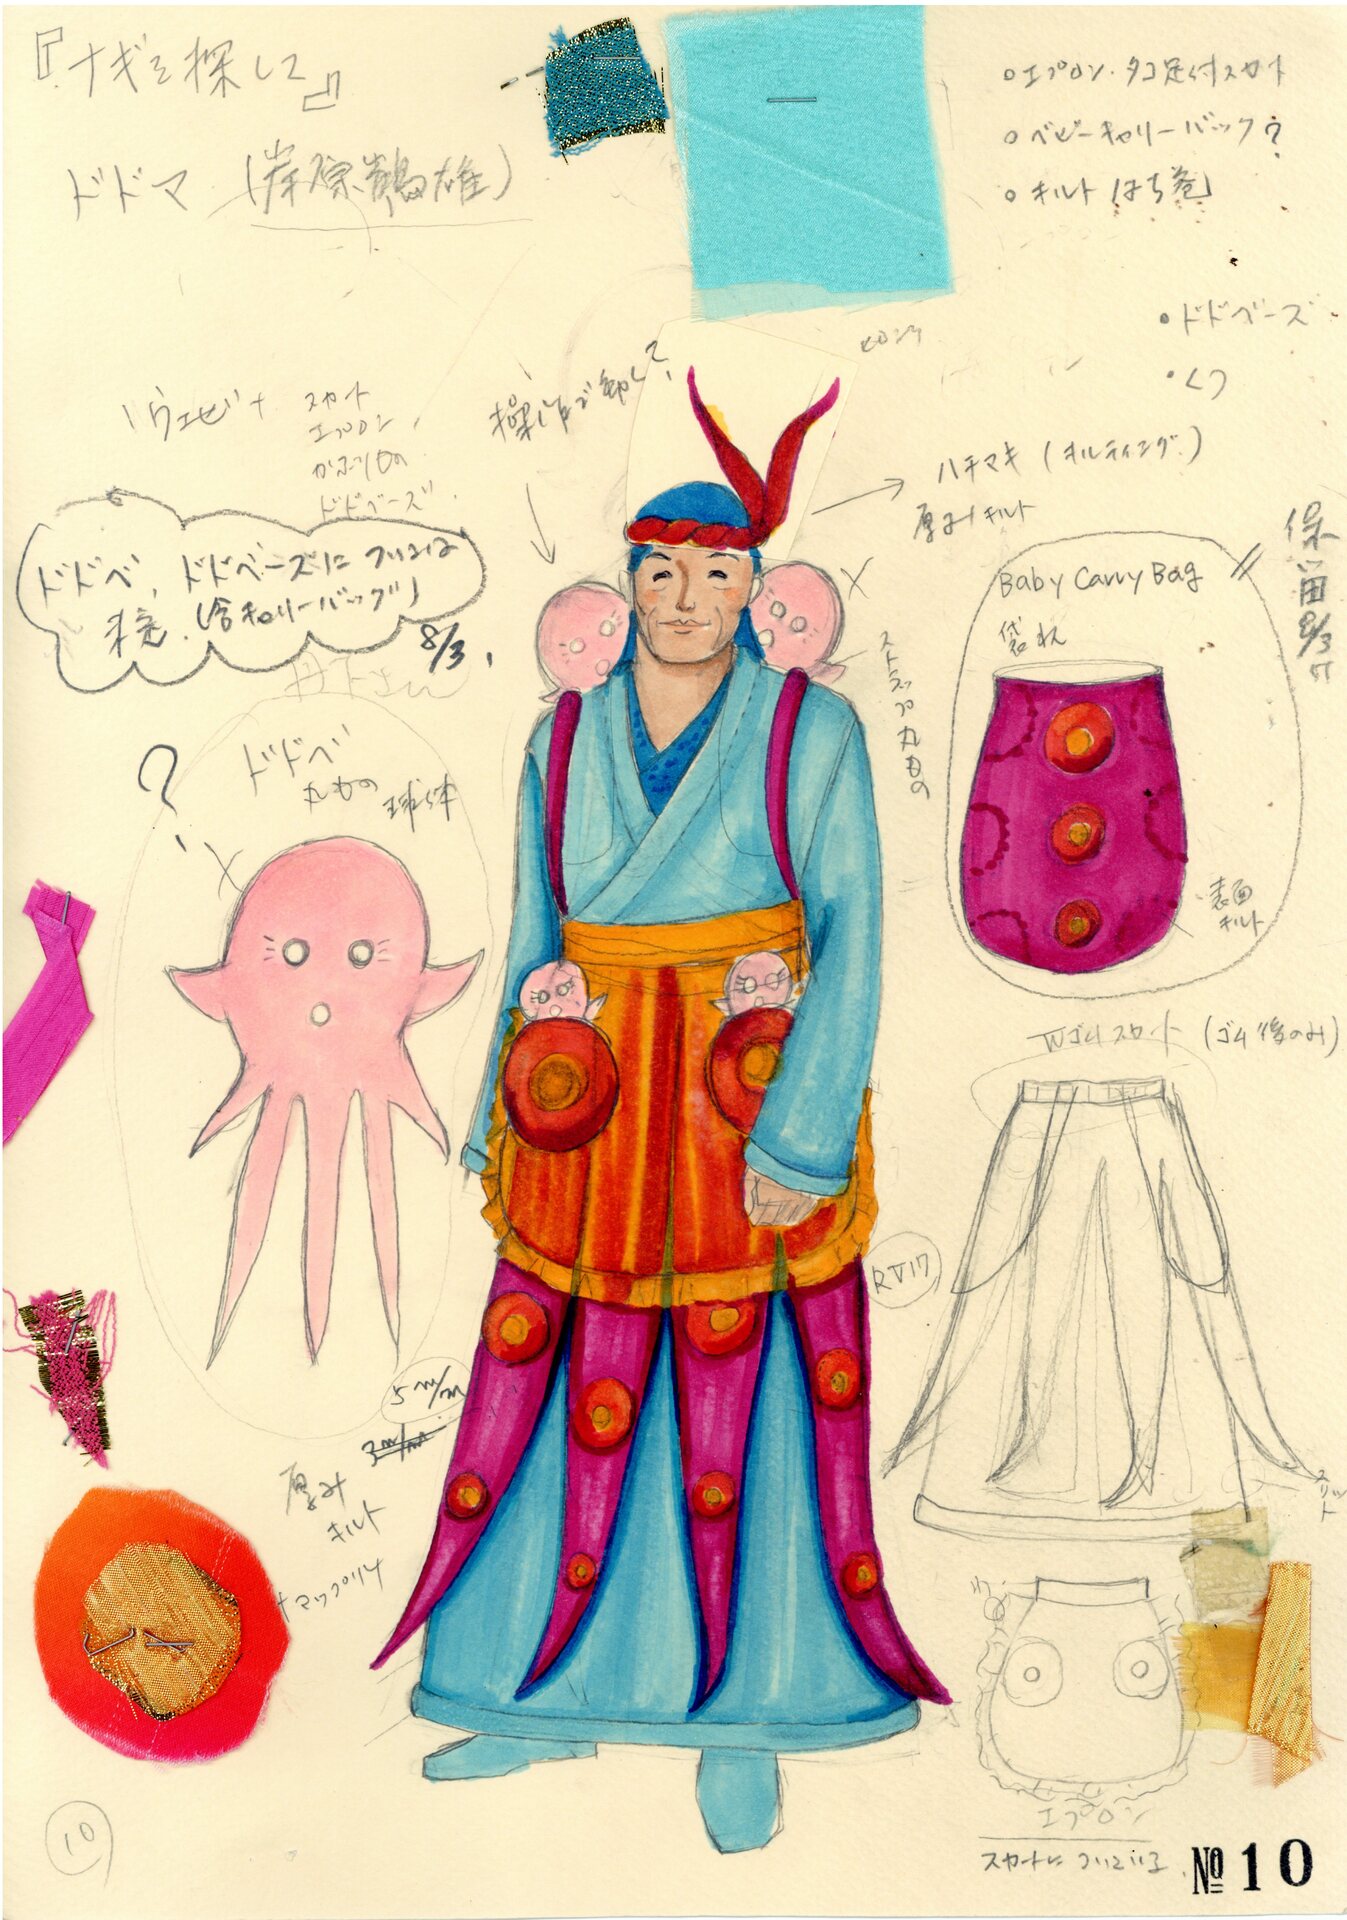 『ナギを探して』
ドドマ (岸原鶴雄)
○エプロン・タコ足付スカート
○ベビーキャリーバック?
○キルトはち巻
・ドドベーズ
・くつ
スカート
エプロン
かぶりもの
ドドベーズ
操作で動かして?
ハチマキ (キルティング)
厚みキルト
ドドベ、ドドベーズについては
未定、(含キャリーバッグ)
8/3
保留
8/3
Baby Carry Bag
袋状
表面
キルト
ストラップ丸もの
?
ドドベ
丸もの
球体
×
×
Wゴムスカート (ゴム後のみ)
RV17
スリット
5m/m
3m/m
厚み
キルト
マップリケ
エプロン
スカートについている
10
No 10